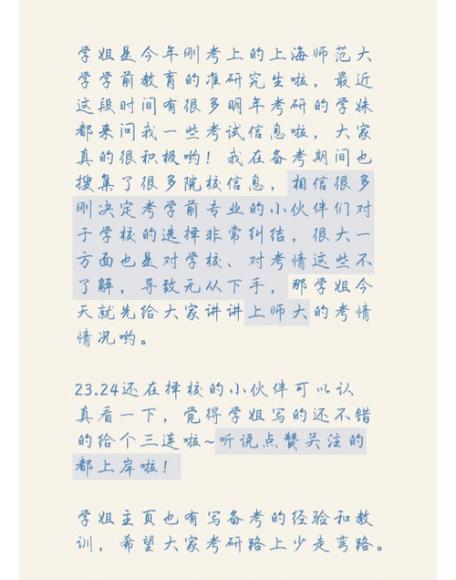 学姐是今年刚考上的上海师范大
学学前教育的准研究生啦，最近
这段时间有很多明年考研的学妹
都来问我一些考试信息啦，大家
真的很积极哟！我在备考期间也
搜集了很多院校信息，相信很多
刚决定考学前专业的小伙伴们对
于学校的选择非常纠结，很大一
方面也是对学校、对考情这些不
了解，导致无从下手，那学姐今
天就先给大家讲讲上师大的考情
情况哟。
23.24还在择校的小伙伴可以认
真看一下，觉得学姐写的还不错
的给个三连啦~听说点赞关注的
都上岸啦！
学姐主页也有写备考的经验和教
训，希望大家考研路上少走弯路。